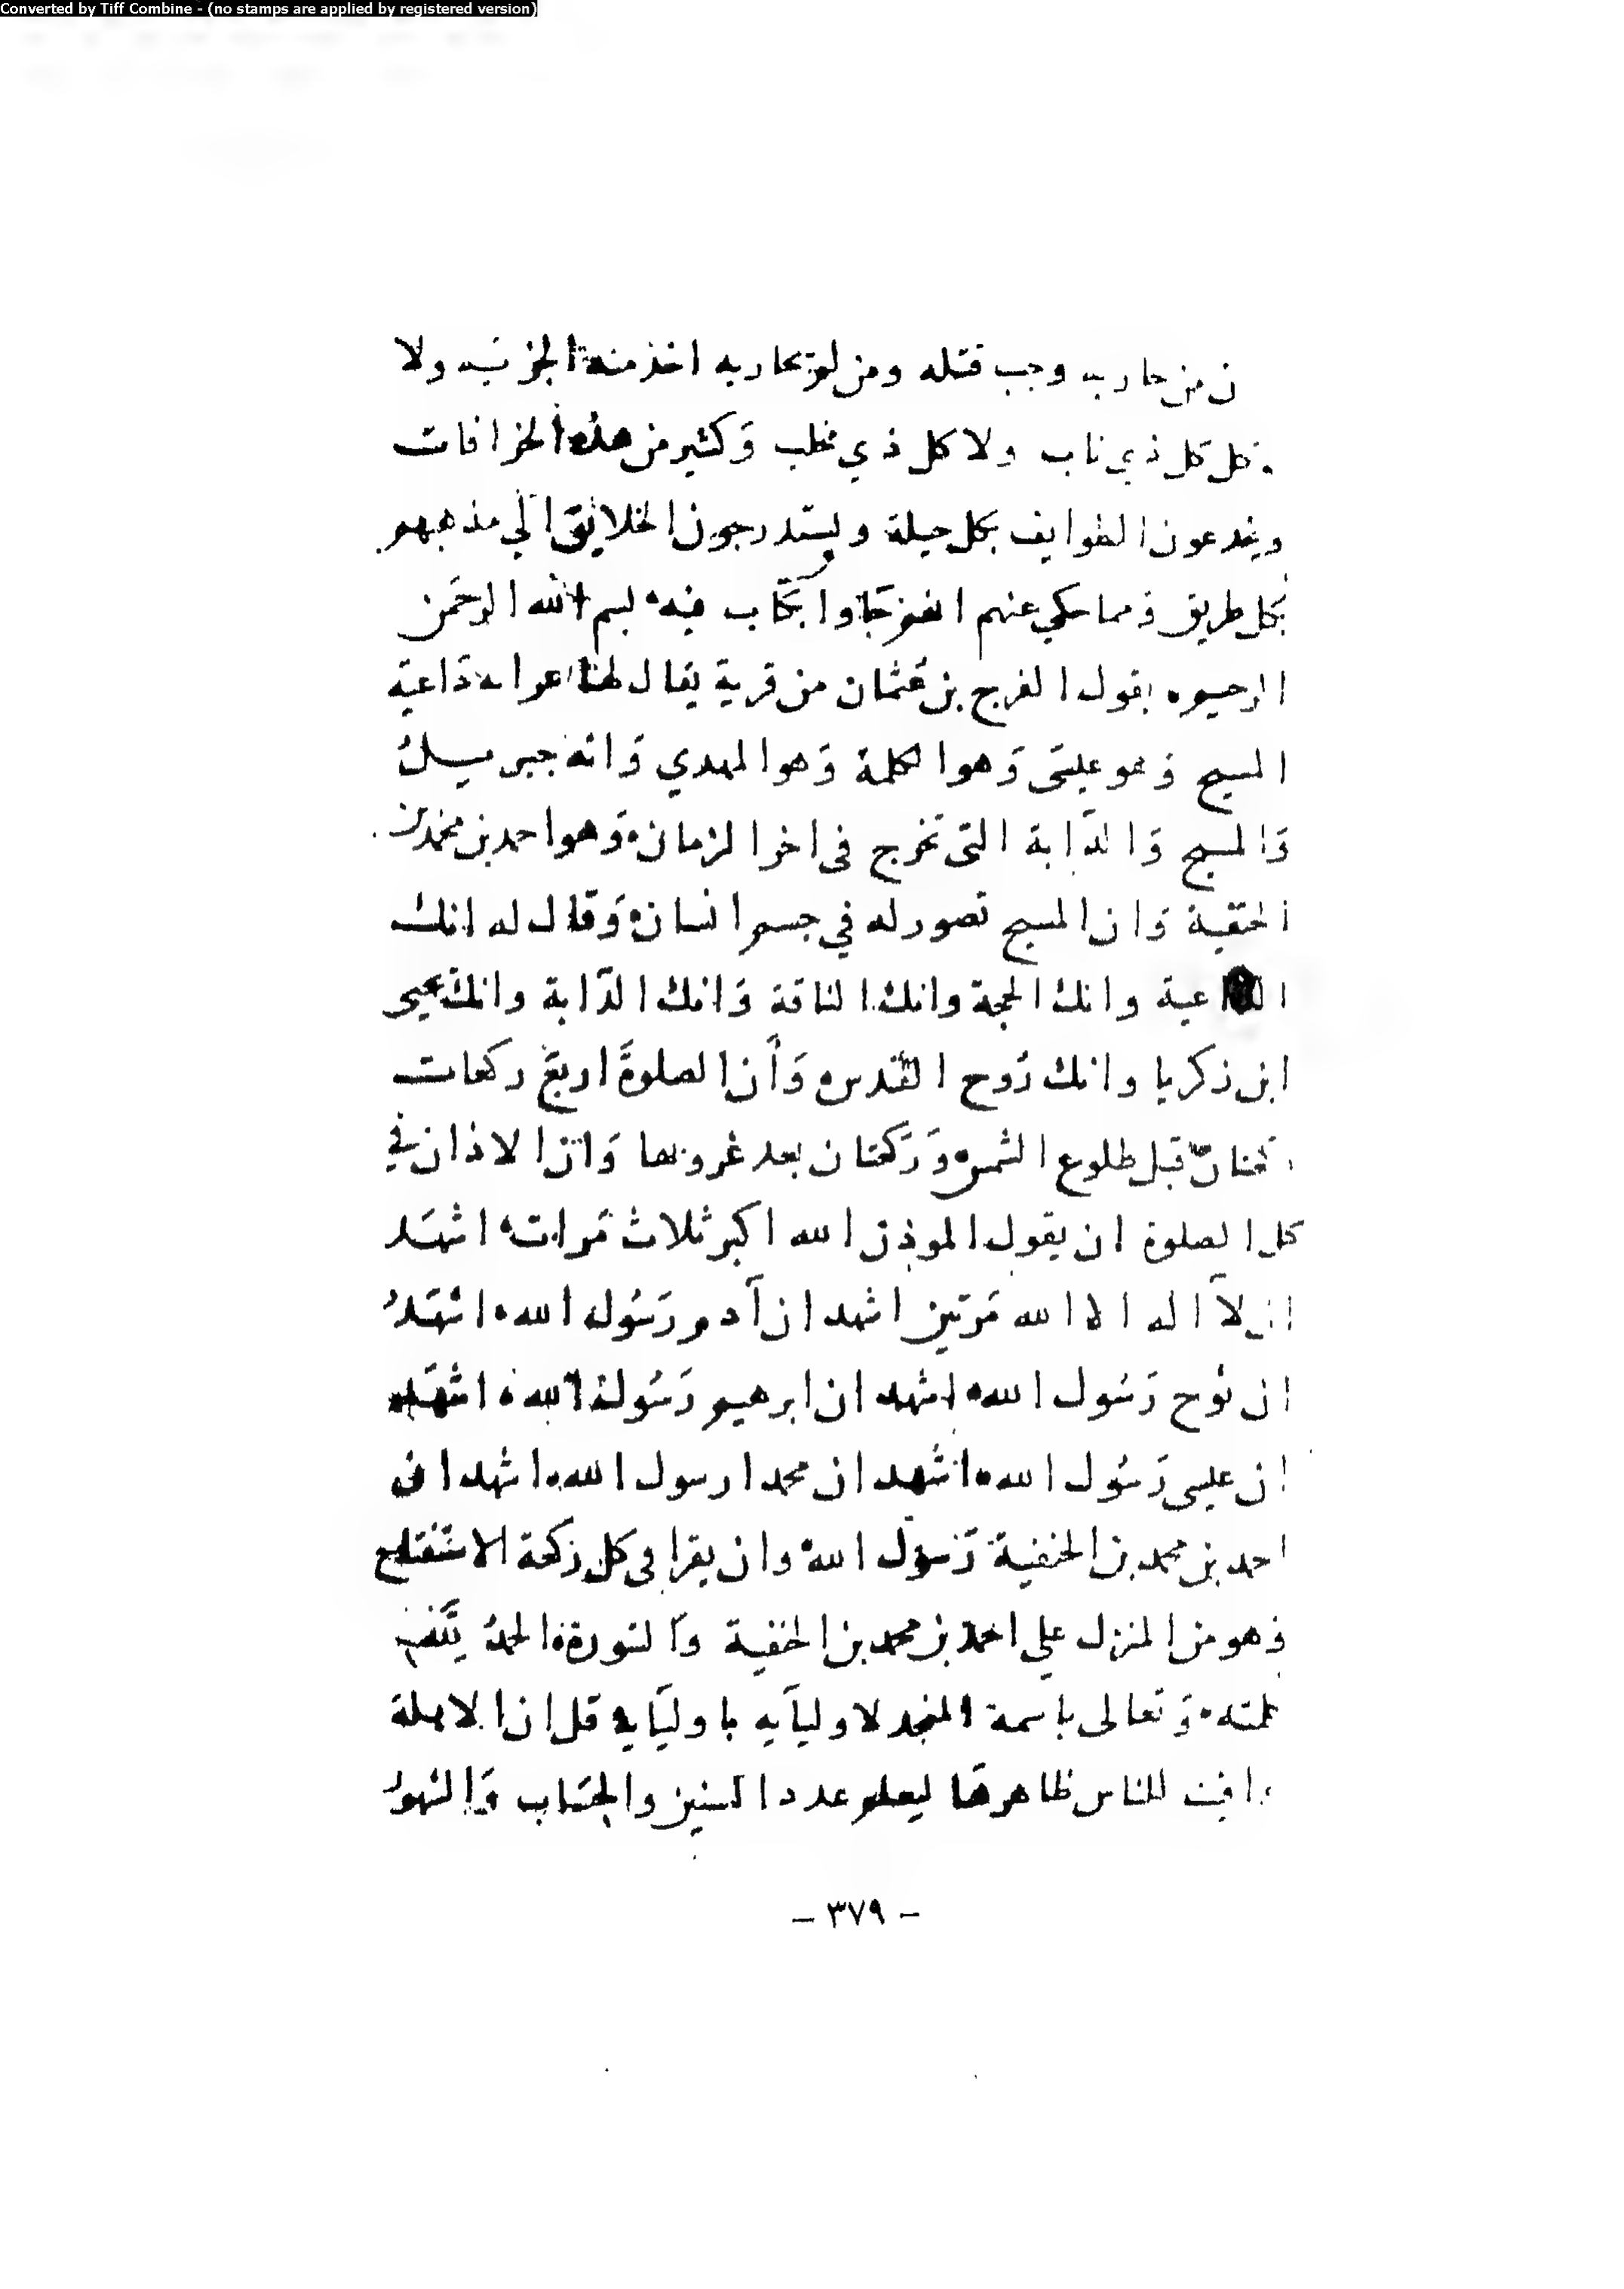 Converted by Tiff Combine - (no stamps are applied by registered version)
ن من حاربه وجب قتله ومن لم يحاربه اخذ منه الجزية ولا
كل كل ذي ناب ولا كل ذي مخلب وكثير من هذه الخرافات
ويخدعون الطوايف بكل حيلة ويستدرجون الخلائق الي مذهبهم
بكل طريق فمما حكي عنهم انهم جاوا بكتاب فيه بسم الله الرحمن
الرحيم يقول الفرج بن عثمان من قرية يقال لها داعية
المسيح وهو عيسى وهو الكلمة وهو المهدي وانه جبرييل
والمسيح والدابة التى تخرج فى اخر الزمان وهو احمد بن محمد بن
الحنفية وان المسيح تصور له في جسم انسان وقال له انك
الداعية وانك الحجة وانك الناقة وانك الدّابة وانك يحيى
ابن زكريا وانك رُوح القدس وأن الصلوة اربع ركعات
ركعتان قبل طلوع الشمس وركعتان بعد غروبها وان الاذان في
كل الصلوة ان يقول الموذن الله اكبر ثلاث مرات اشهد
ان لا اله الا الله مرتين اشهد ان آدم رسُول الله اشهدُ
ان نوح رسُول الله اشهد ان ابرهيم رسُول الله اشهد
ان عيسى رسُول الله اشهد ان محمدا رسول الله اشهد ان
احمد بن محمد بن الحنفية رسول الله وان يقرا فى كل ركعة الاستفتاح
وهو من المنزل علي احمد بن محمد بن الحنفية والسورة الحمدُ
بكلمته وتعالى باسمه المنجد لاوليآيه باوليآيه قل ان الاهلة
مواقيت للناس ظاهرها ليعلم عدد السنين والحساب والشهورُ
- ٣٧٩ -